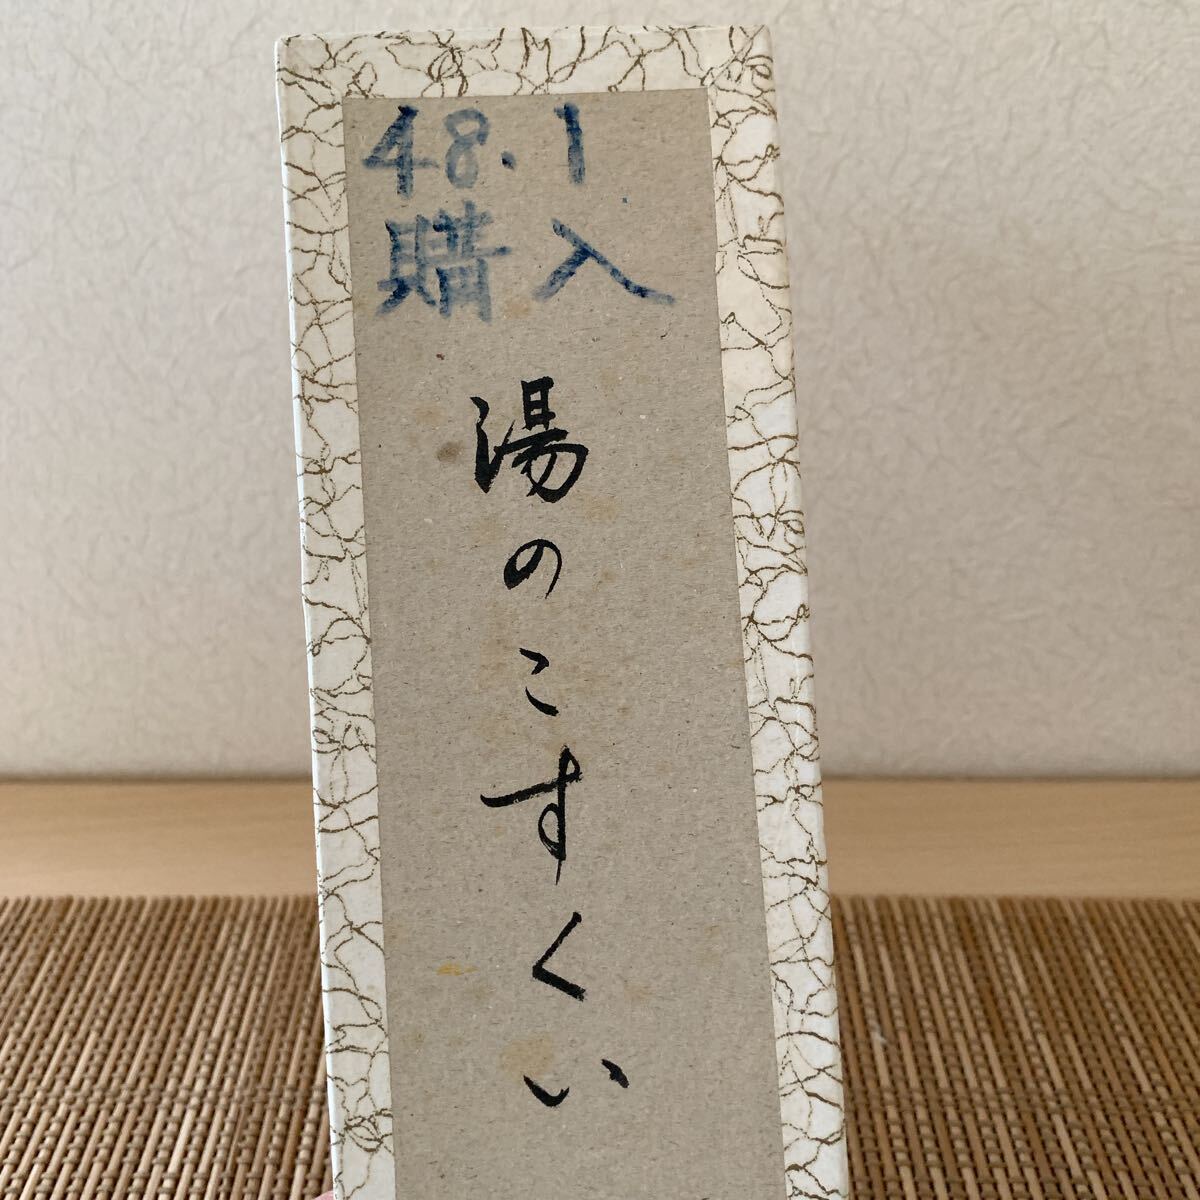 48.1
購入
湯のこすくい